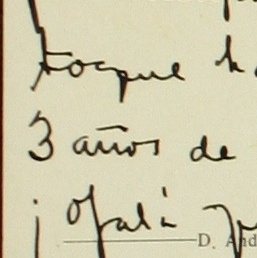 toque h
3 años de
¡Ojalá
D. And